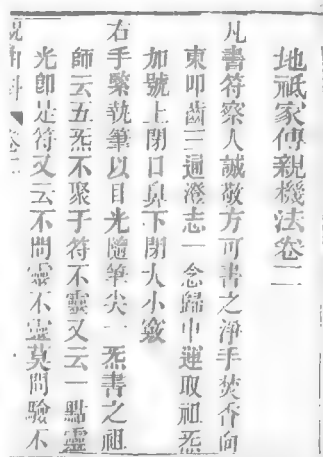 地祇家傳親機法卷二
凡書符察人誠敬方可書之淨手焚香向
東叩齒三通澄志一念歸中運取祖炁
加號上閉口鼻下閉大小竅
右手緊執筆以目光隨筆尖一炁書之祖
師云五炁不聚于符不靈又云一點靈
光卽是符又云不問靈不靈莫問驗不
祝由科 卷二